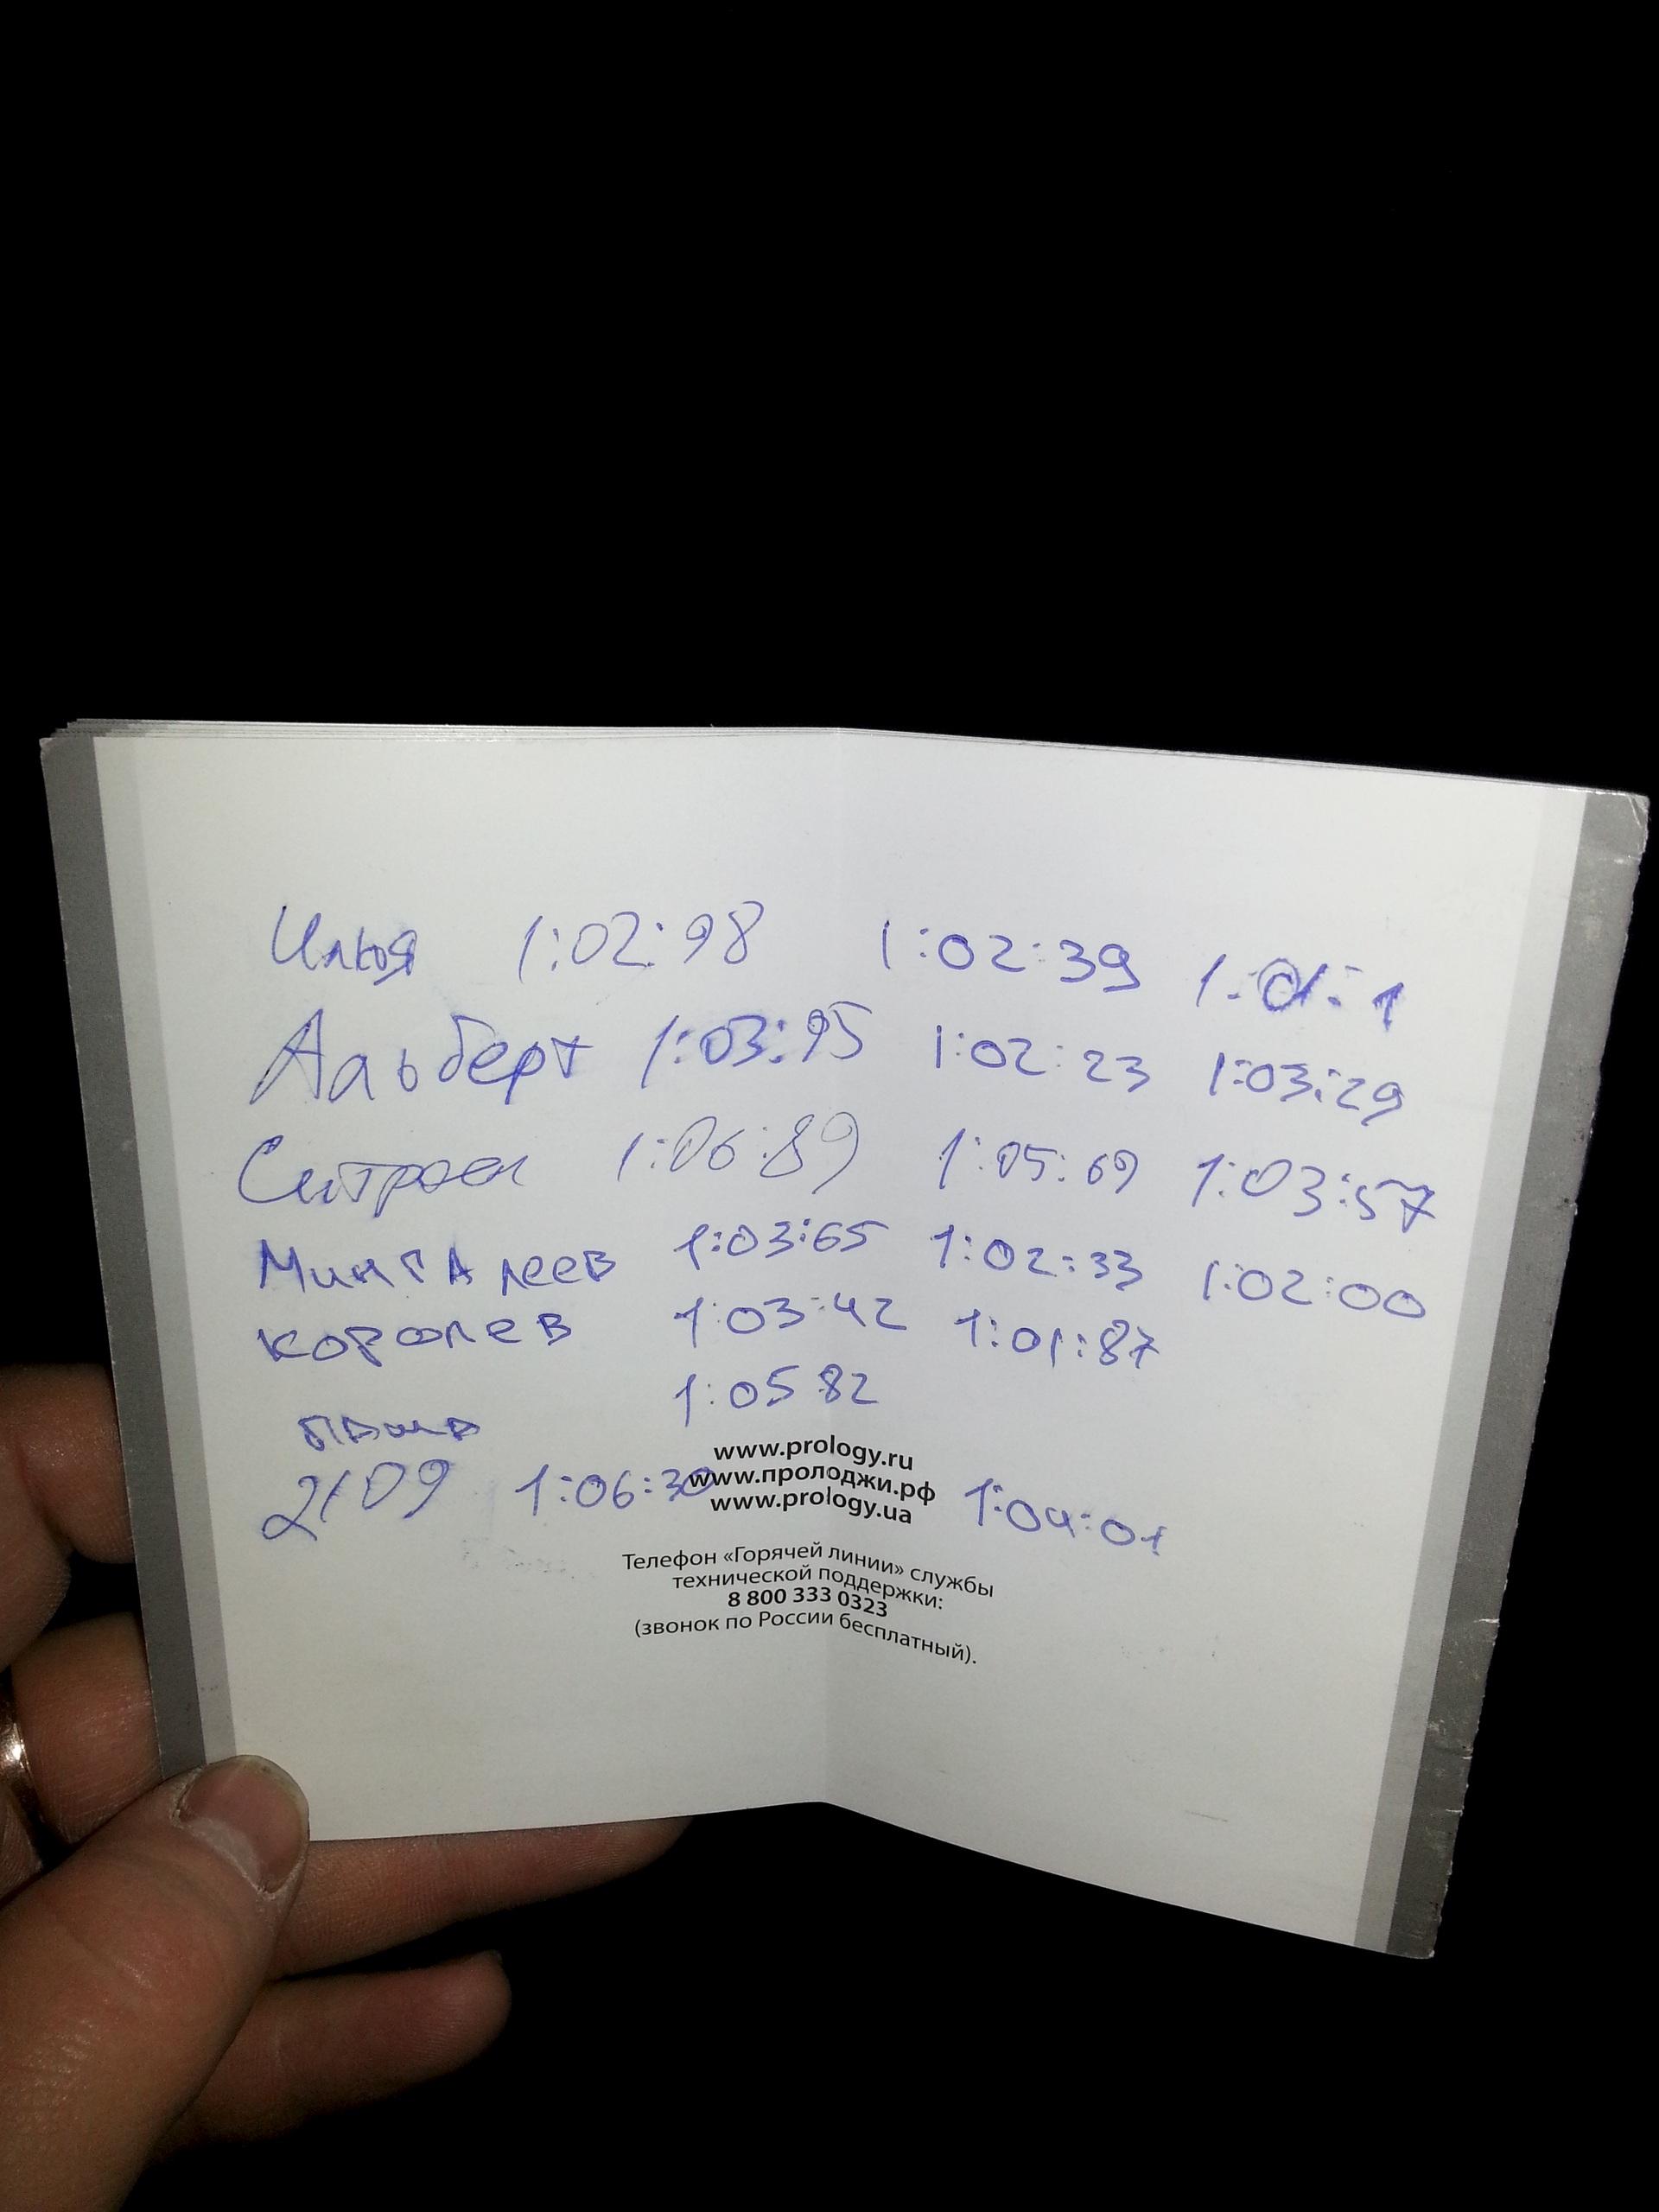 Илья 1:02:98 1:02:39 1:01:1
Альберт 1:03:95 1:02:23 1:03:29
Ситроен 1:06:89 1:05:69 1:03:57
МингАлеев 1:03:65 1:02:33 1:02:00
Королев 1:03:42 1:01:87
1:05 82
паша
2109 1:06:30 1:04:01
www.prology.ru
www.пролоджи.рф
www.prology.ua
Телефон «Горячей линии» службы
технической поддержки:
8 800 333 0323
(звонок по России бесплатный).